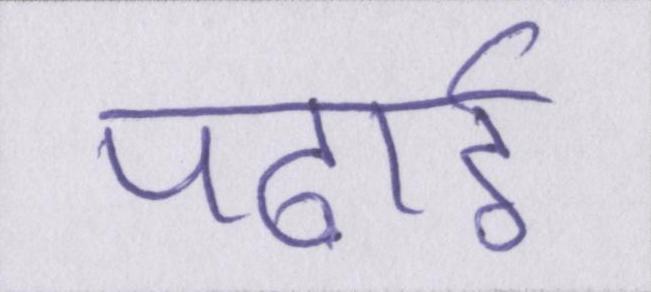 पढाई